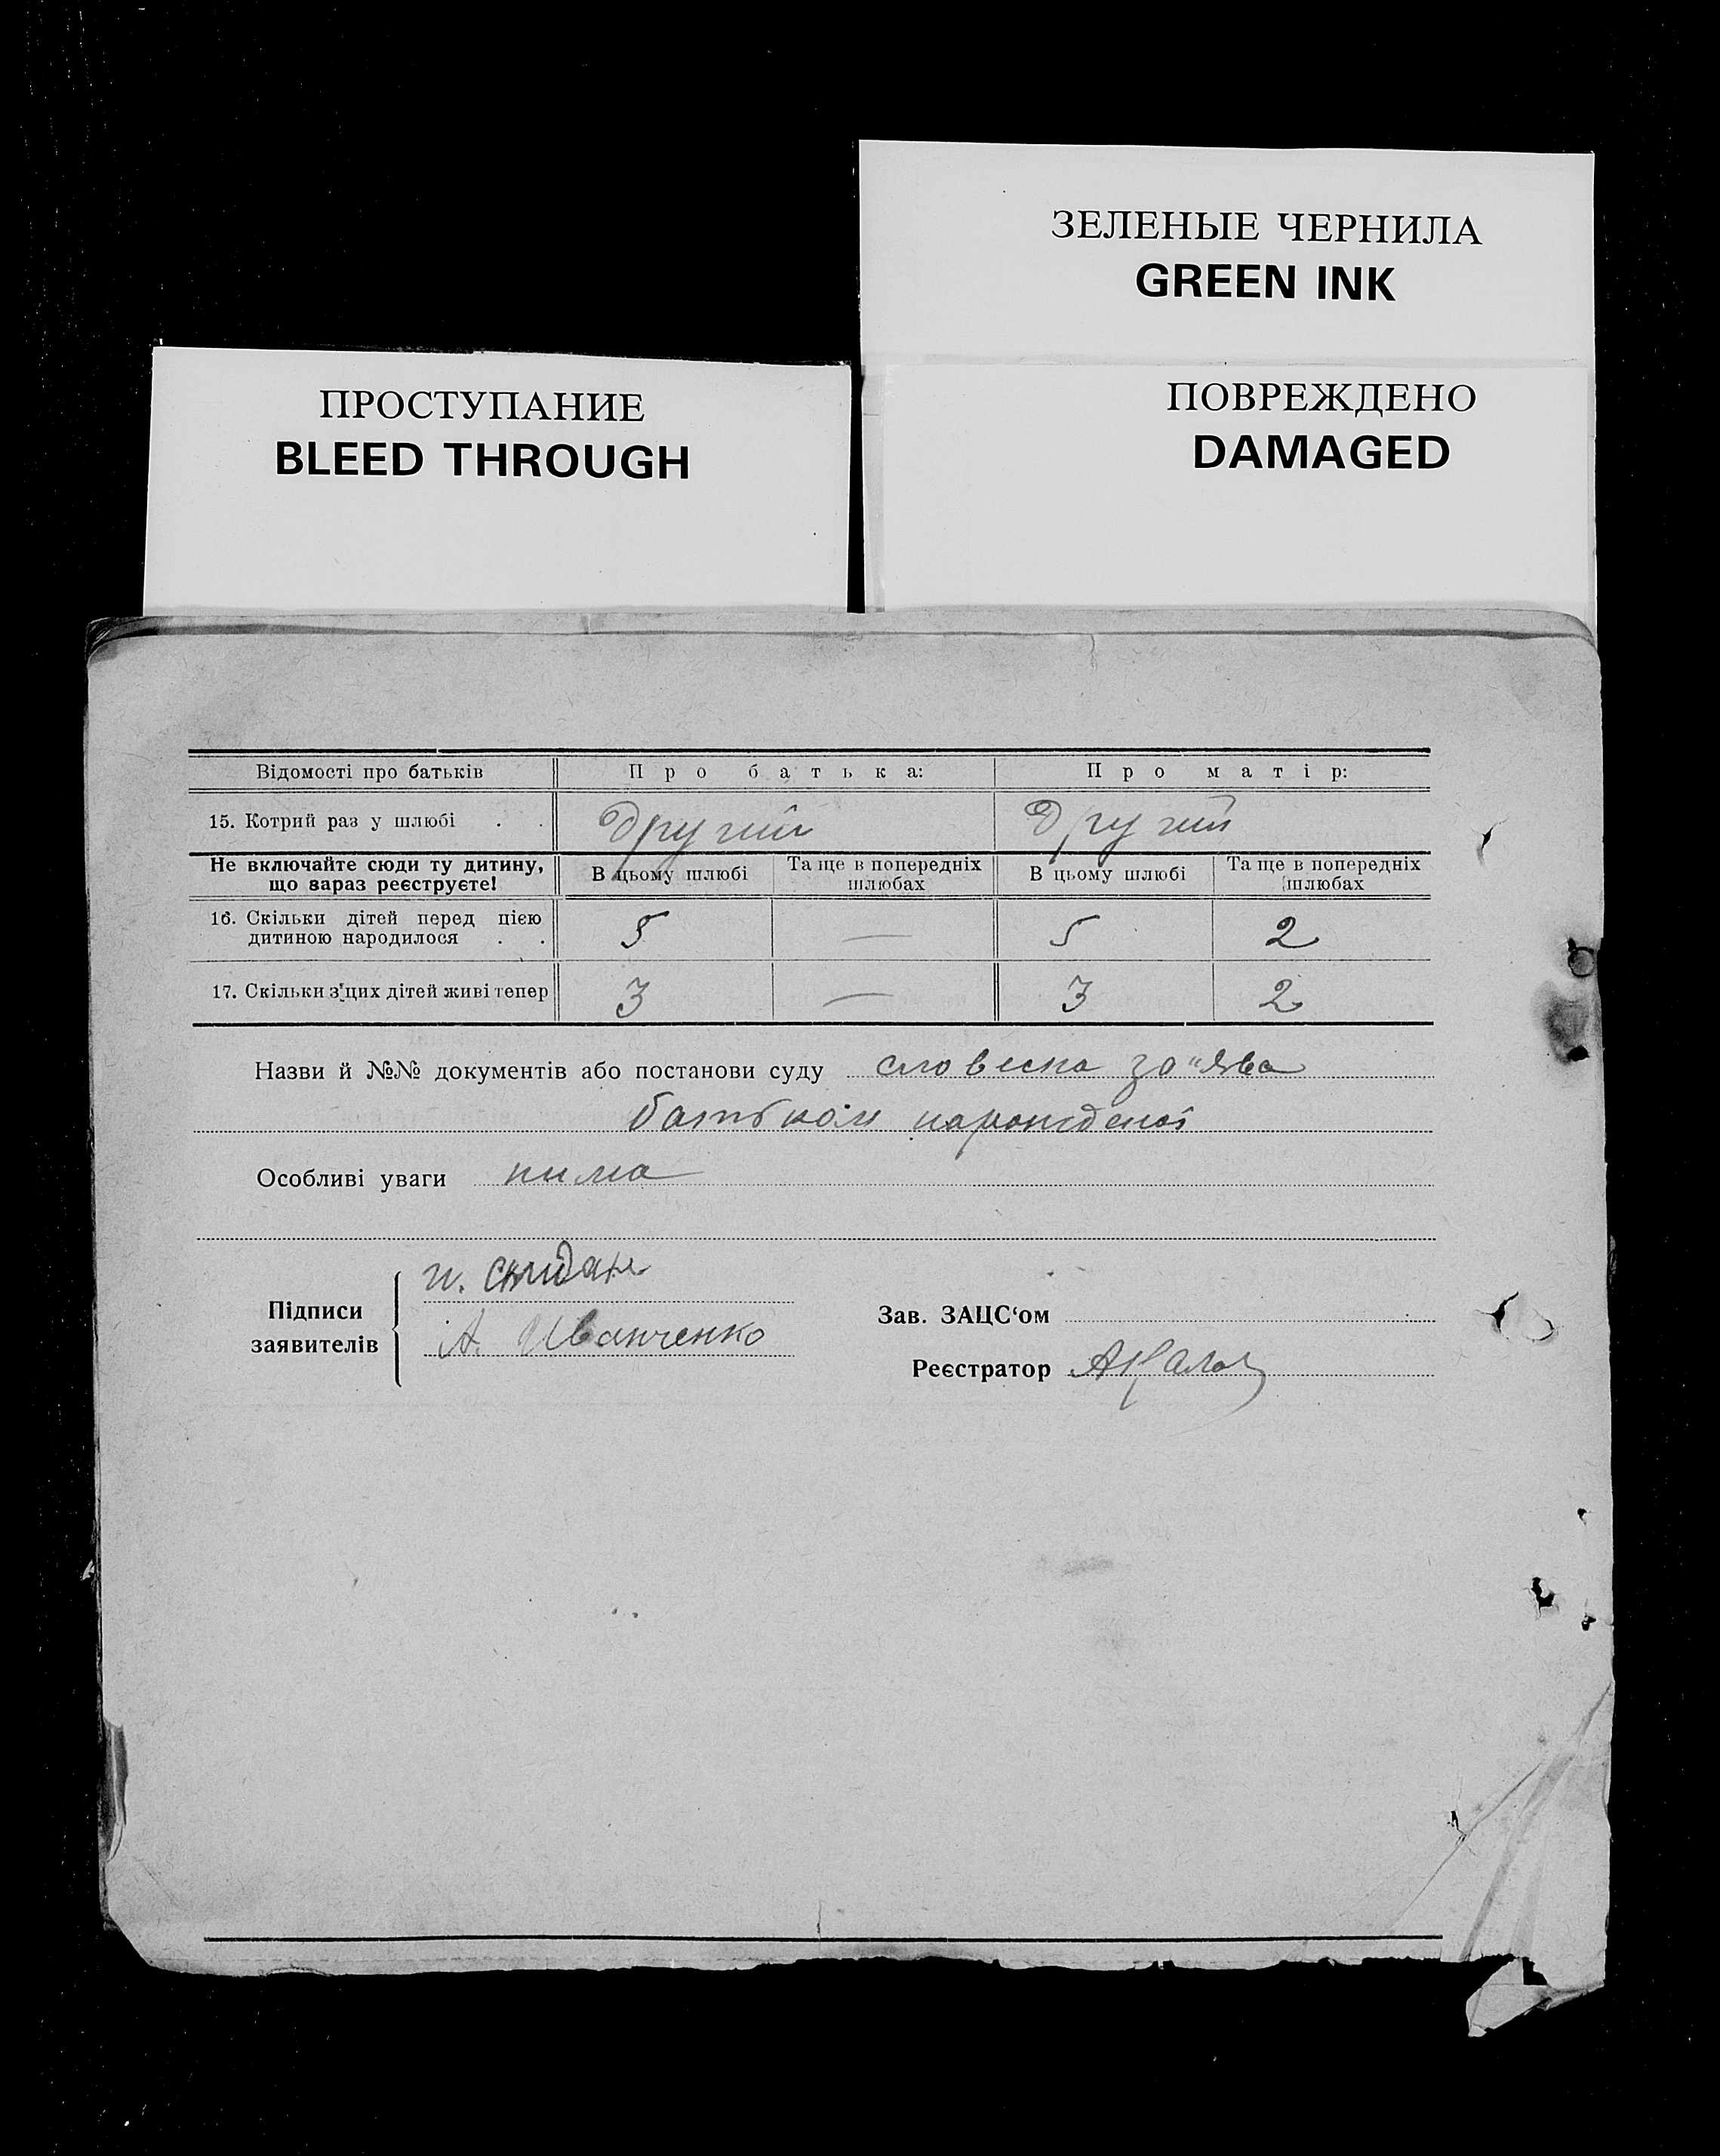 ЗЕЛЕНЫЕ ЧЕРНИЛА
GREEN INK
ПРОСТУПАНИЕ
BLEED THROUGH
ПОВРЕЖДЕНО
DAMAGED
Відомості про батьків Про батька: Про матір:
15. Котрий раз у шлюбі . . Другий Другий
Не включайте сюди ту дитину, що вараз реєструєте! В цьому шлюбі Та ще в попередніх шлюбах В цьому шлюбі Та ще в попередніх шлюбах
16. Скільки дітей перед цією дитиною народилося . . 5 — 5 2
17. Скільки з'цих дітей живі тепер 3 — 3 2
Назви й №№ документів або постанови суду словесна за"ява
батьком
Особливі уваги нима
Підписи заявителів
А. Иванченко
Зав. ЗАЦС‘ом
Реєстратор